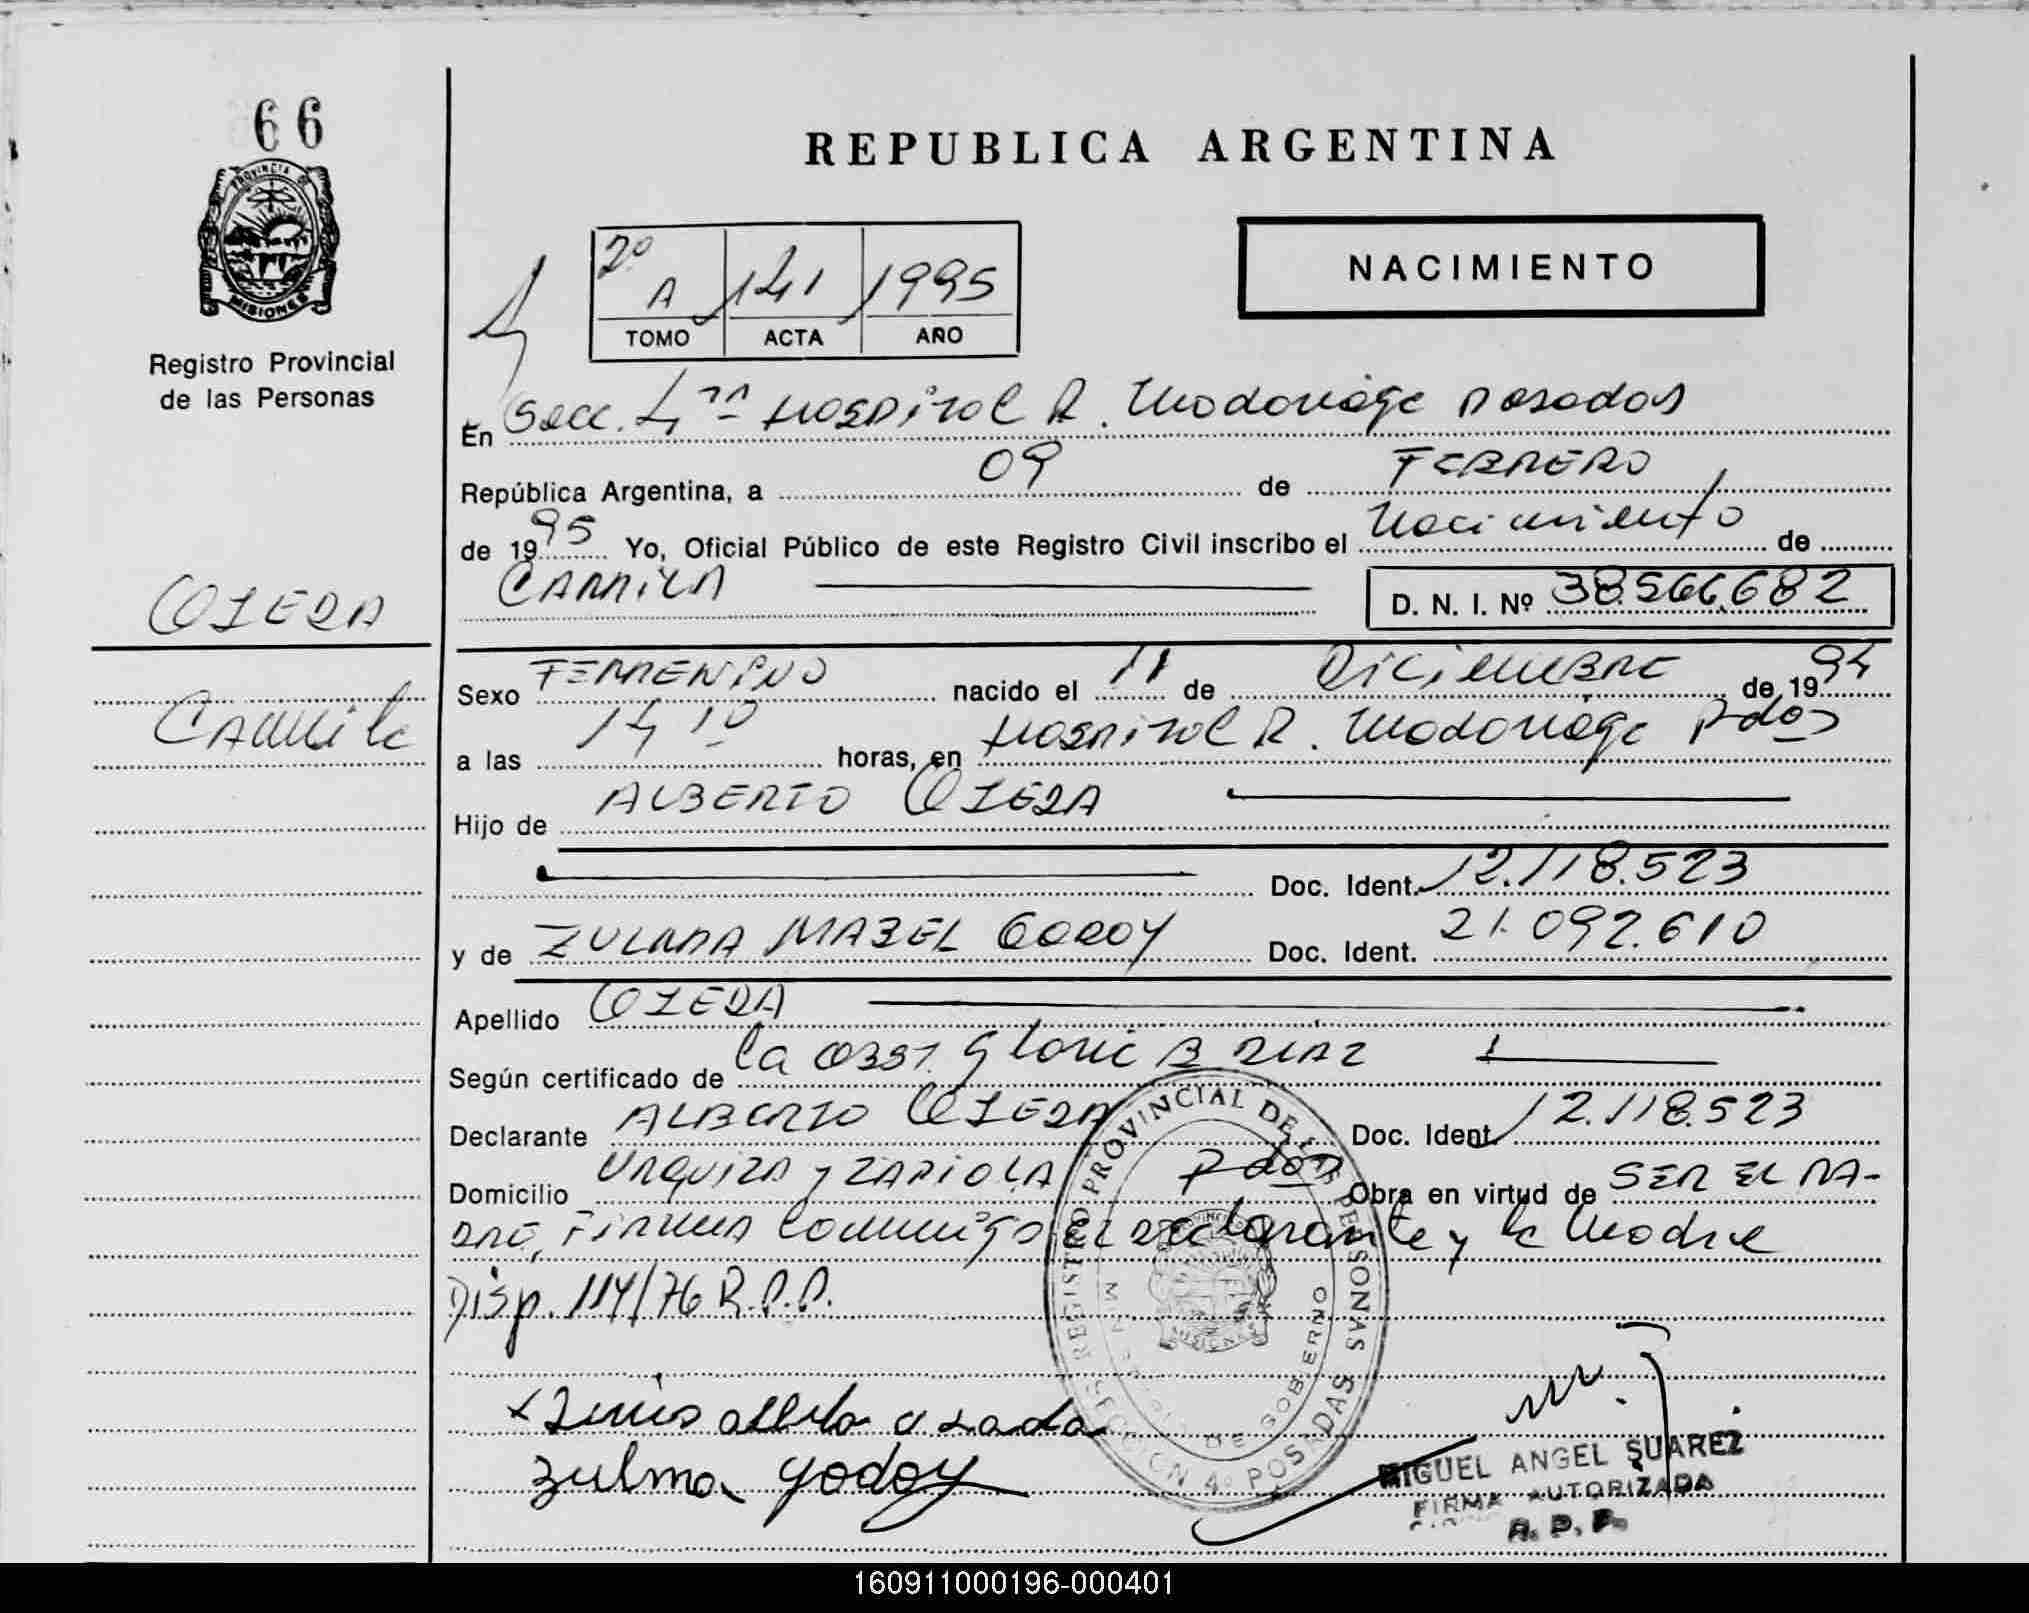 66
PROVINCIA DE
MISIONES
Registro Provincial
de las Personas
REPUBLICA ARGENTINA
2º A 141 1995
TOMO ACTA AÑO
NACIMIENTO
4
En Secc. 4ta Hospital R. Madariaga Posadas
República Argentina, a 09 de FEBRERO
de 1995 Yo, Oficial Público de este Registro Civil inscribo el Nacimiento de
CAMILA
D. N. I. Nº 38.566.682
OJEDA
Camila
Sexo FEMENINO nacido el 11 de DICIEMBRE de 1994
a las 14 10 horas, en Hospital R. Madariaga Pdas
Hijo de ALBERTO OJEDA
Doc. Ident. 12.118.523
y de ZULMA MABEL GODOY Doc. Ident. 21.092.610
Apellido OJEDA
Según certificado de la OBST. Gloria B DIAZ
Declarante ALBERTO OJEDA Doc. Ident. 12.118.523
Domicilio URQUIZA y ZAPIOLA Pdas Obra en virtud de SER EL PA-
DRE, Firman conmigo el declarante y la Madre
Disp. 114/76 R.P.P.
REGISTRO PROVINCIAL DE LAS PERSONAS
MINISTERIO DE GOBIERNO
SECCION 4º POSADAS
MISIONES
alberto
Zulma Godoy
MIGUEL ANGEL SUAREZ
FIRMA AUTORIZADA
R. P. P.
160911000196-000401